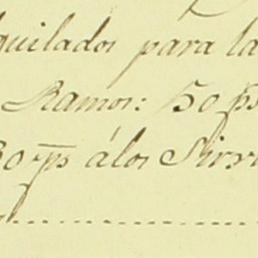 quilados para la
Ramos: 50 ps
80 ps álos Sirvi